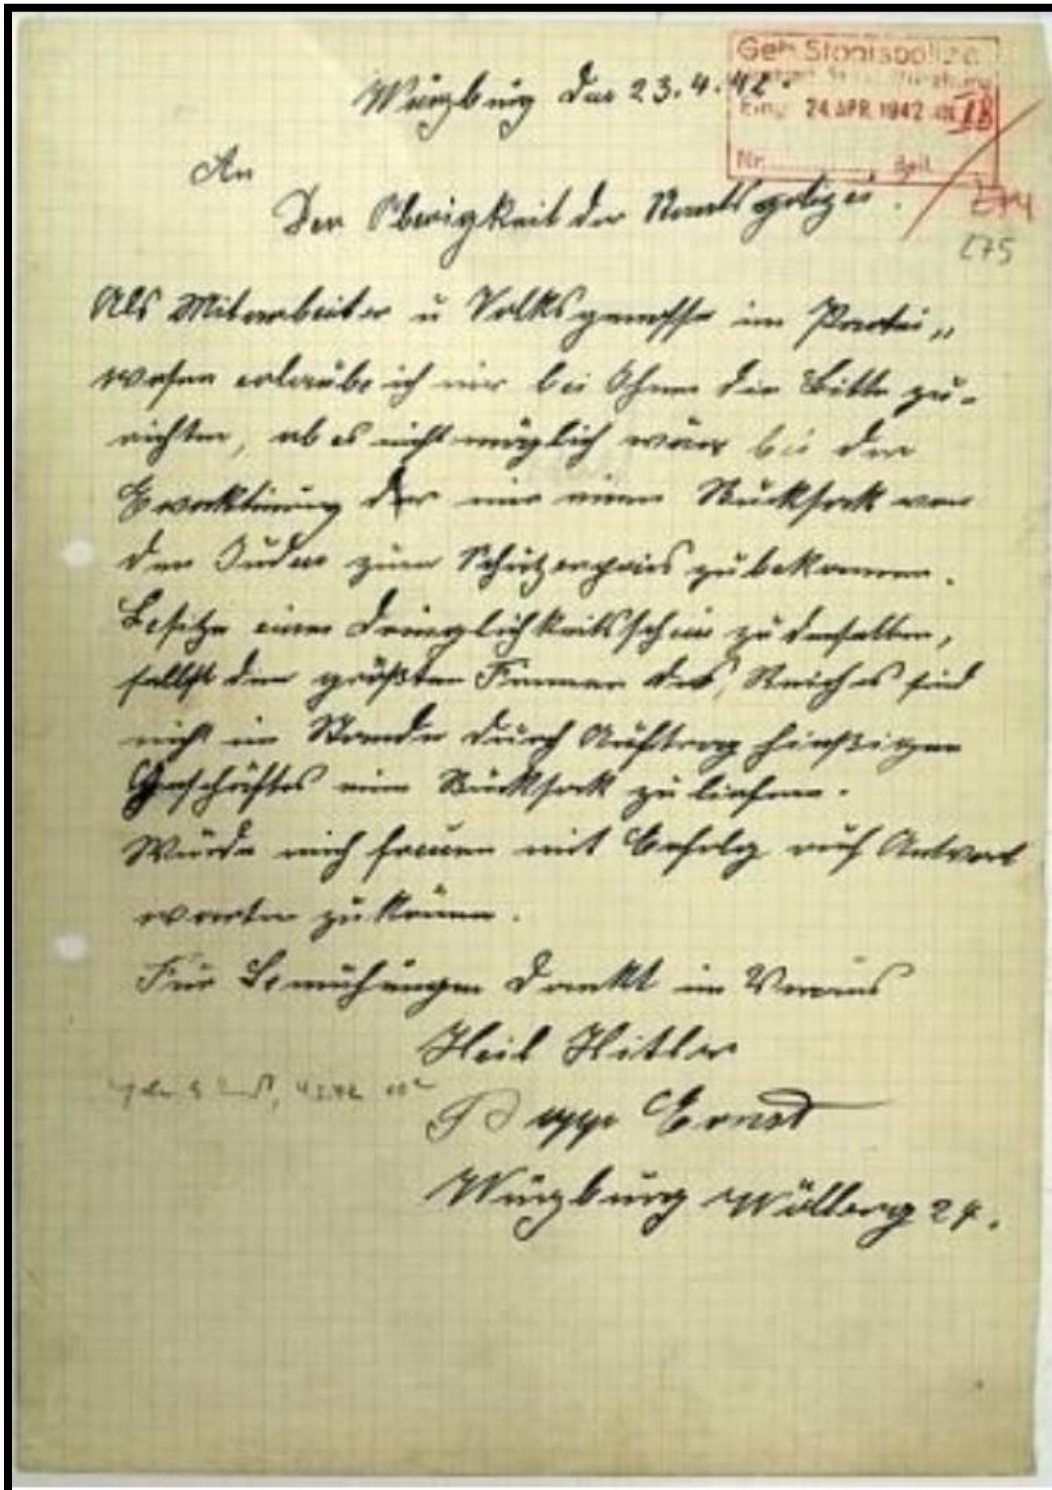 Geh. Staatspolizei
Eing. 24. APR. 1942 IIB
Nr. Beil.
Würzburg den 23.4.42.
An
Der Oberigkeit der Staatspolizei.
275
Als Mitarbeiter u Volksgenosse im Partei„
wesen erlaube ich mir bei Ihnen die Bitte zu-
richten, ob es nicht möglich wäre bei der
Evaktiuung der mir einen Rucksack von
den Juden zum Schätzerpreis zu bekommen.
Besitze einen Dringlichkeitsschein zu denselben,
selbst den größten Firmen des Reiches sind
nicht im Stande durch Auftrag hießigen
Geschäftes ein Rucksack zu liefern.
Würde mich freuen mit Erfolg auf Antwort
warten zu können.
Für Bemühungen dankt im Voraus
Heil Hitler
Ernst
Würzburg Wöllerg 24.